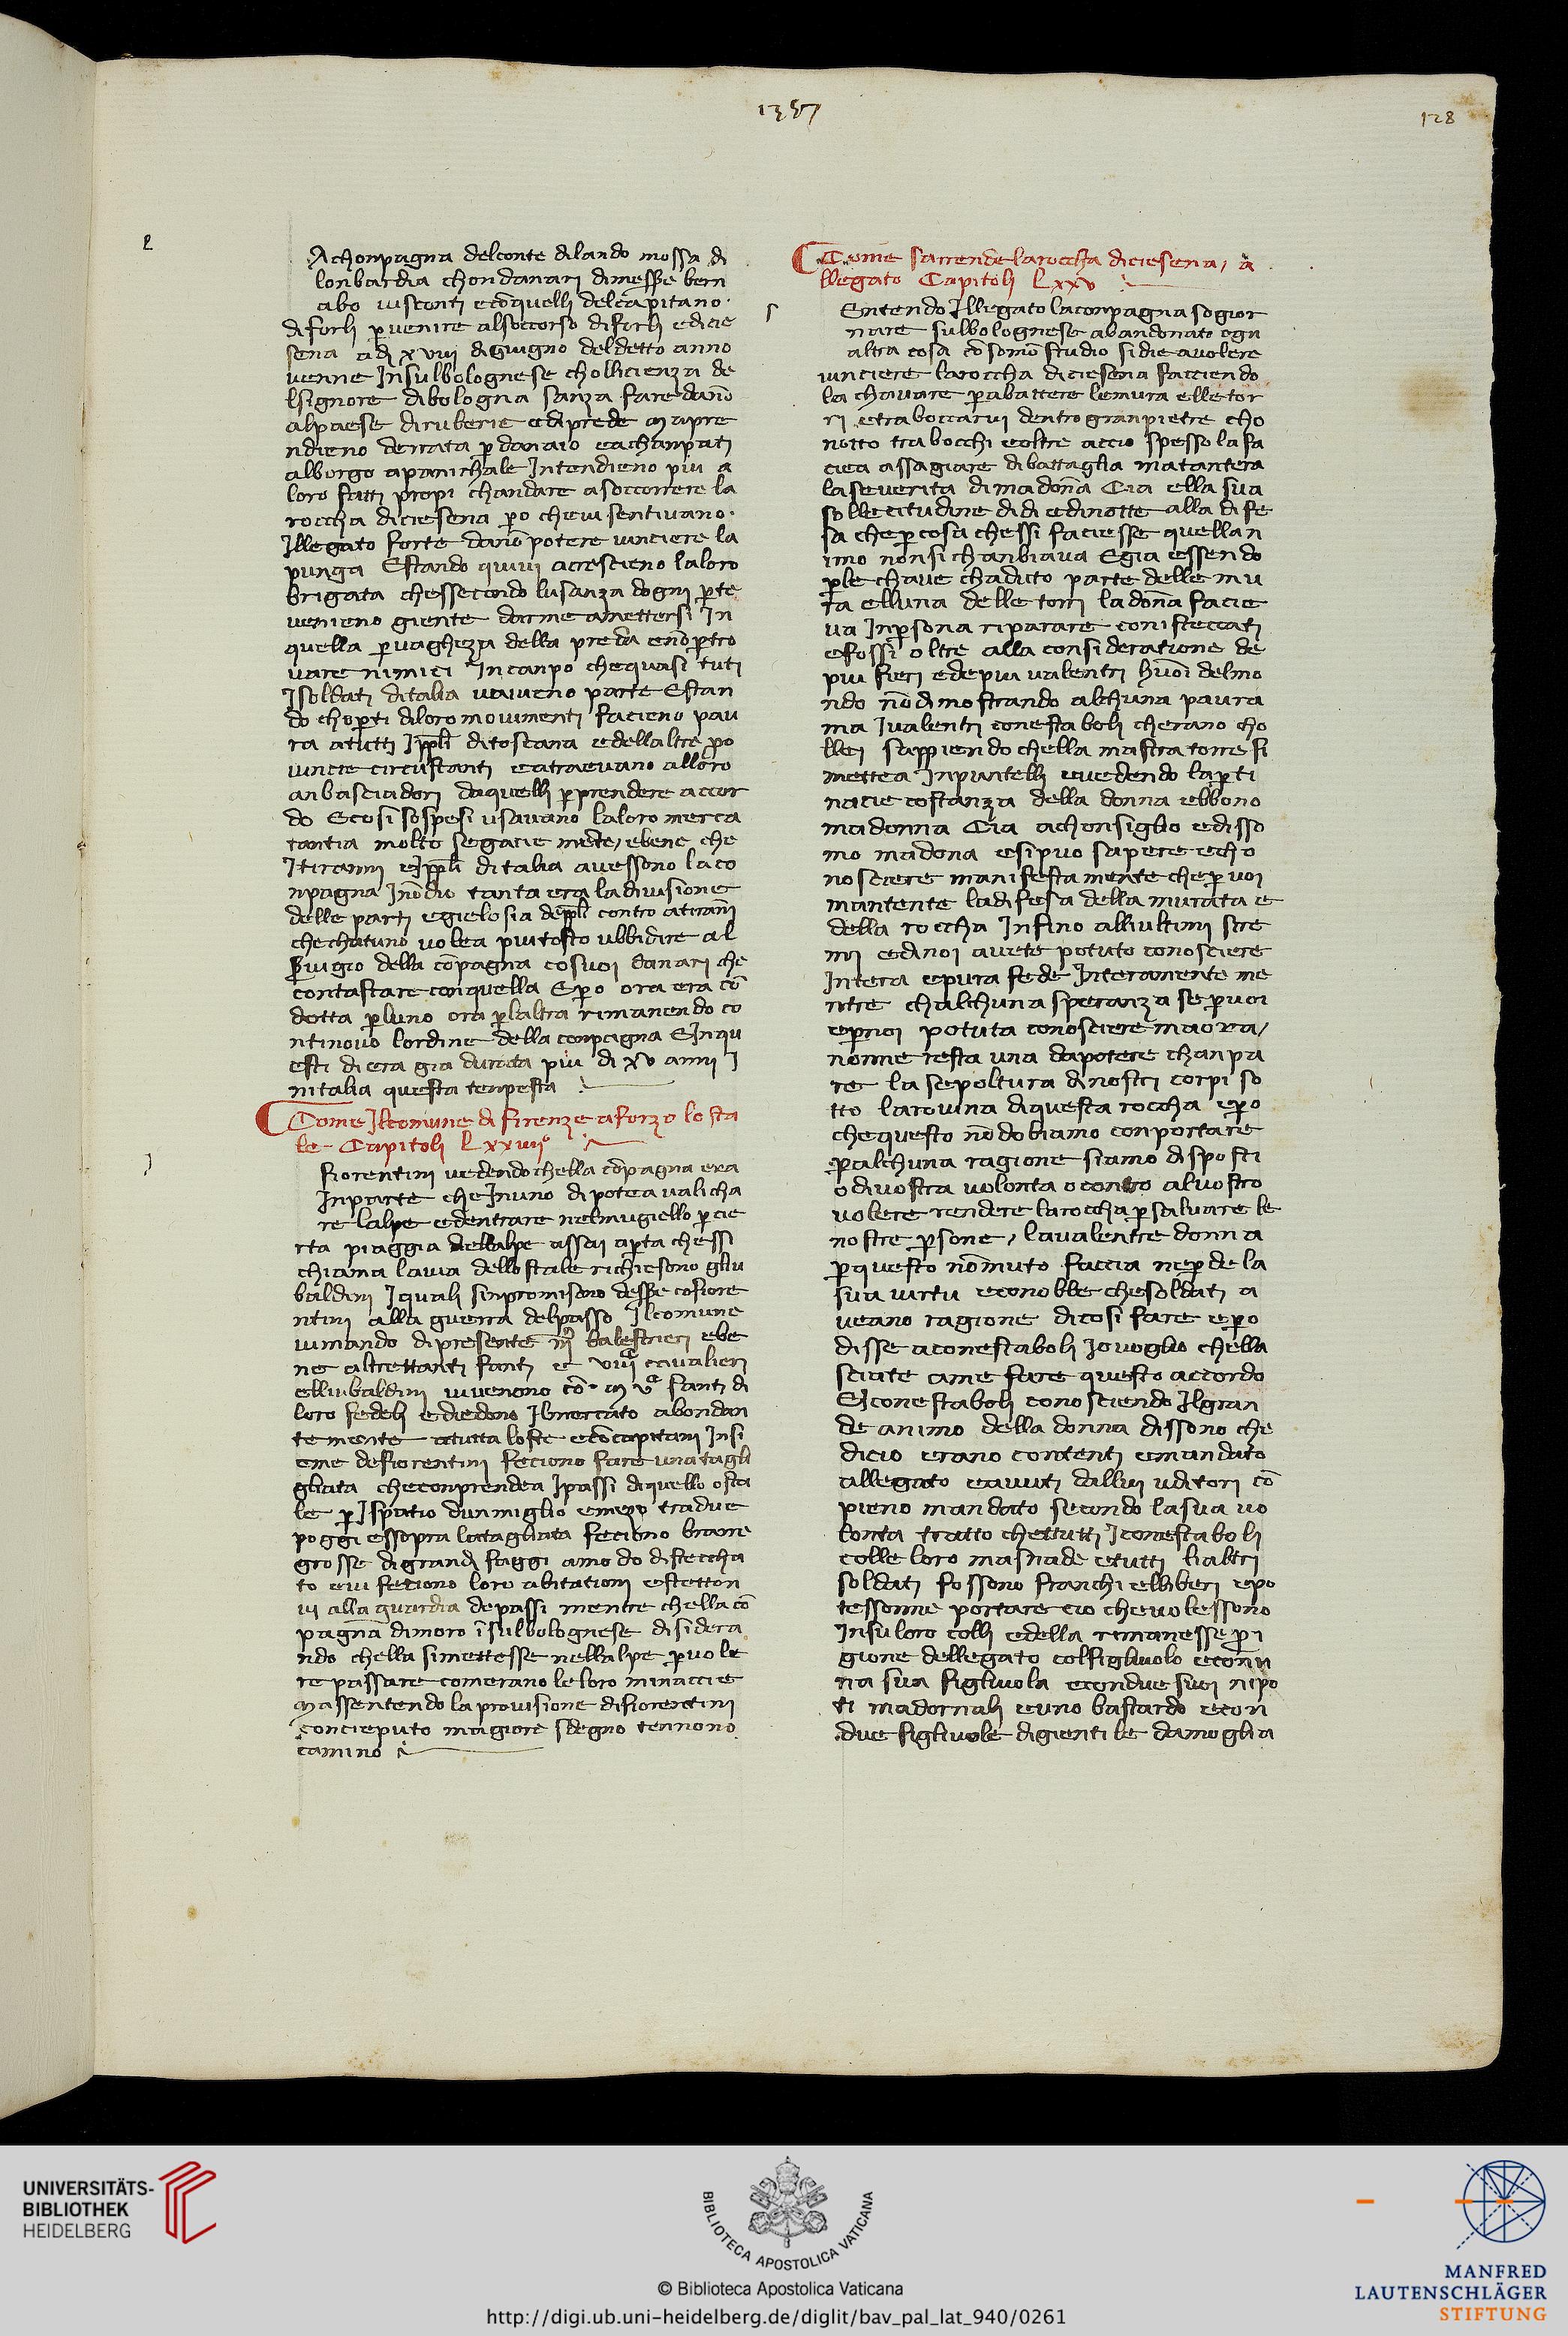 1357
128
l
Achonpagna delconte dilando mossa di
lonbardia chondanari dimesse bern
abo uisconti econquelli delcapitano
diforli per uenire alsoccorso diforli edicie
sena adi xviii digiugno deldetto anno
uenne Insulbolognese chollicienza de
lsignore dibologna sanza fare danno
alpaese diruberie edaprede Mapre
ndieno derrata per danaio eachanpati
alborgo apanichale Intendieno piu a
loro fatti propi chandare asoccorrere la
roccha diciesena pero cheui sentiuano
Illegato forte danō potere uinciere la
punga Estando quiui acrescieno laloro
brigata chessecondo lusanza dogni parte
uenieno giente darme amettersi In
quella per uaghezza della preda enō per tro
uare nimici In canpo chequasi tuti
Isoldati ditalia uaueno parte Estan
do choperti diloro mouimenti facieno pau
ra atutti Ippli ditoscana edellaltre pro
uincie circustanti eatraeuano alloro
anbasciadori daquelli per prendere accor
do Ecosi sospesi usauano laloro merca
tantia molto segacie mente, ebene che
Itiranni eIppli ditalia auessono laco
npagna Inōdio tanta era ladiuisione
delle parti egielosia deppli contro atiranni
chechatuno uolea piutosto ubbidire al
seruigio della cōpagna cosuoi danari che
contastare conquella Epero ora era cō
dotta per luno ora per laltra rimanendo co
ntinouo lordine della conpagna EInqu
esti di era gia durata piu di xv anni I
nitalia questa tenpesta
Come Ilcomune di firenze aforzo losta
le Capitoli Lxxiiii°
I
fiorentini uedendo chella cōpagna era
Inparte cheInuno di potea ualicha
re lalpe edentrare nelmugiello per cie
rta piaggia dellalpe assai aperta chessi
chiama lauia dellostale richiesono gliu
baldini Iquali sinpromisono desse cofiore
ntini alla guerra delpasso Ilcomune
uimando dipresente balestrieri ebe
ne altrettanti fanti e cavalieri
elliubaldini uiuenono cō fanti di
loro fedeli ediedono Ilmercato abondan
temente atutta loste ecōcapitani Insi
eme defiorentini feciono fare una tagli
gliata checonprendea Ipassi diquello osta
le per Ispatio dunmiglio emezo tradue
poggi essopra latagliata feciono barre
grosse digrandi faggi amodo disteccha
to eui feciono loro abitationi estetton
ui alla guardia depassi mentre chella cō
pagna dimoro īsulbolognese disidera
ndo chella simettesse nellalpe per uole
re passare comerano leloro minaccie
Massentendo laprouisione difiorentini
concieputo magiore sdegno tennono
camino
Come sarrende laroccha diciesena, a
llegato Capitoli Lxxv
S
Entendo Illegato laconpagna sogior
nare sulbolognese abandonato ogn
altra cosa cō somō studio sidie auolere
uinciere laroccha diciesena facciendo
la chauare per abattere lemura elletor
ri etraboccarui dentro gran pietre cho
notto trabocchi eoltre accio spesso lafa
ciea assagiare dibattaglia matantera
laseuerita dimadonna Cia ella sua
sollecitudine didi edinotte alla dife
sa cheper cosa chessi faciesse quellan
imo nonsi chanbiaua Egia essendo
per le chaue chaduto parte delle mu
ra elluna delle torri ladonna facie
ua Inpersona riparare consteccati
efossi oltre alla consideratione de
piu fieri edepiu ualentri huoī delmo
ndo nō dimostrando alchuna paura
ma Iualentri conestaboli cherano cho
llei sappiendo chella mastra torre si
mettea Inpuntelli euedendo laperti
nacie costanza della donna ebbono
madonna Cia achonsiglio edisso
no madona esipuo sapere echo
nosciere manifestamente cheper uoi
mantente ladifesa della murata e
della roccha Infino alliultimi stre
mi edanoi auete potuto conosciere
Intera epura fede Interamente me
ntre chalchuna speranza seper uoi
eper noi potuta conosciere maora,
nonne resta una dapotere chanpa
re la sepoltura dinostri corpi so
tto larouina diquesta roccha epero
chequesto nō dobiamo conportare
per alchuna ragione siamo disposti
odiuostra uolonta ocontro aluostro
uolere rendere laroccha per saluare le
nostre persone, laualentre donna
per questo nōmuto faccia neper de la
sua uirtu econobbe chesoldati a
ueano ragione dicosi fare epero
disse aconestaboli Iouoglio chella
sciate ame fare questo accordo
EIconestaboli conosciendo Ilgran
de animo della donna dissono che
dicio erano contenti emandato
allegato eauuti dallui uditori cō
pieno mandato secondo lasua uo
lonta tratto chettutti Iconestaboli
colle loro masnade etutti lialtri
soldati fossono franchi elliberi epo
tessonne portare cio cheuolessono
Insu loro colli edella rimanesse pri
gione dellegato colfigliuolo econn
na sua figliuola econdue suoi nipo
ti madornali euno bastardo econ
due figliuole digientile damoglia
UNIVERSITÄTS-
BIBLIOTHEK
HEIDELBERG
BIBLIOTECA APOSTOLICA VATICANA
© Biblioteca Apostolica Vaticana
http://digi.ub.uni-heidelberg.de/diglit/bav_pal_lat_940/0261
MANFRED
LAUTENSCHLÄGER
STIFTUNG